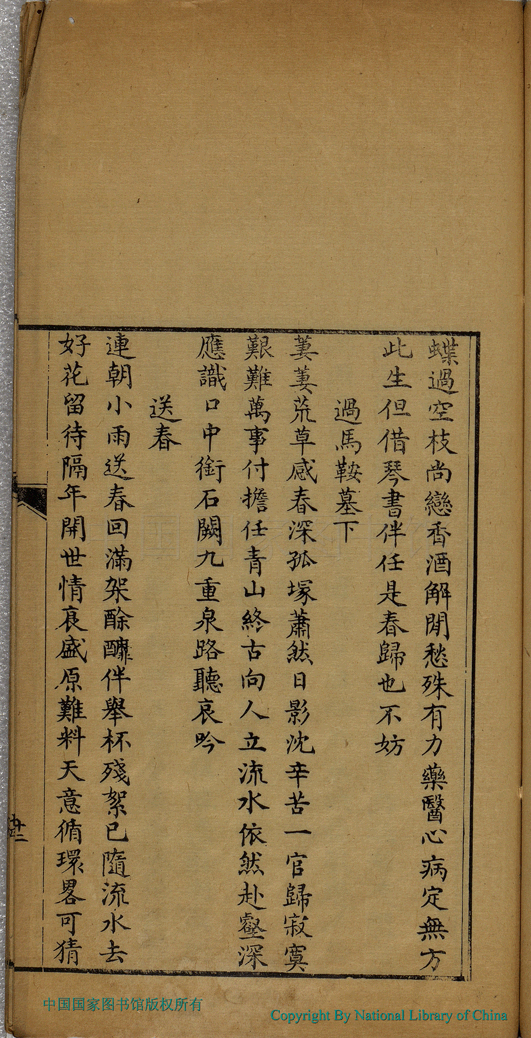 蝶過空枝尚戀香酒解閒愁殊有力藥醫心病定無方
此生但借琴書伴任是春歸也不妨
過馬鞍墓下
萋萋荒草感春深孤塚蕭然日影沈辛苦一官歸寂寞
艱難萬事付擔任青山終古向人立流水依然赴壑深
應識口中銜石闕九重泉路聽哀吟
送春
連朝小雨送春回滿架酴醿伴舉杯殘絮已隨流水去
好花留待隔年開世情衰盛原難料天意循環畧可猜
廿二
中国国家图书馆版权所有
Copyright By National Library of China